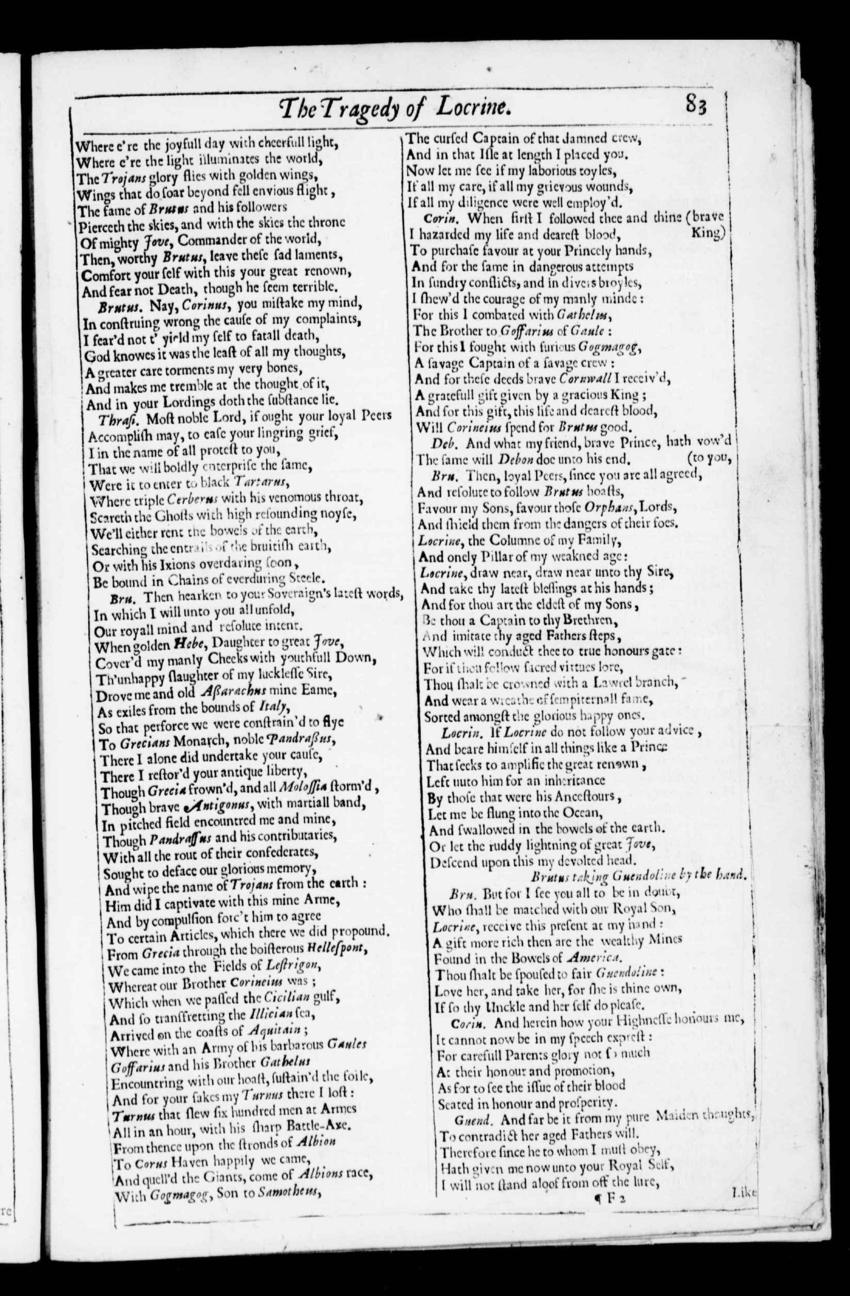 The Tragedy of Locrine. 83
Where e're the joyfull day with cheerfull light,
Where e're the light illuminates the world,
The Trojans glory flies with golden wings,
Wings that do soar beyond fell envious flight,
The fame of Brutus and his followers
Pierceth the skies, and with the skies the throne
Of mighty Jove, Commander of the world,
Then, worthy Brutus, leave these sad laments,
Comfort your self with this your great renown,
And fear not Death, though he seem terrible.
Brutus. Nay, Corinus, you mistake my mind,
In construing wrong the cause of my complaints,
I fear'd not t' yield my self to fatall death,
God knowes it was the least of all my thoughts,
A greater care torments my very bones,
And makes me tremble at the thought of it,
And in your Lordings doth the substance lie.
Thrasi. Most noble Lord, if ought your loyal Peers
Accomplish may, to ease your lingring grief,
I in the name of all protest to you,
That we will boldly enterprise the same,
Were it to enter to black Tartarus,
Where triple Cerberus with his venomous throat,
Scareth the Ghosts with high resounding noyse,
We'll either rent the bowels of the earth,
Searching the entrails of the bruitish earth,
Or with his Ixions overdaring soon,
Be bound in Chains of everduring Steele.
Bru. Then hearken to your Soveraign's latest words,
In which I will unto you all unfold,
Our royall mind and resolute intent.
When golden Hebe, Daughter to great Jove,
Cover'd my manly Cheeks with youthfull Down,
Th'unhappy slaughter of my lucklesse Sire,
Drove me and old Assarachus mine Eame,
As exiles from the bounds of Italy,
So that perforce we were constrain'd to flye
To Grecians Monarch, noble Pandrassus,
There I alone did undertake your cause,
There I restor'd your antique liberty,
Though Grecia frown'd, and all Molossia storm'd,
Though brave Antigonus, with martiall band,
In pitched field encountred me and mine,
Though Pandrassus and his contributaries,
With all the rout of their confederates,
Sought to deface our glorious memory,
And wipe the name of Trojans from the earth:
Him did I captivate with this mine Arme,
And by compulsion forc't him to agree
To certain Articles, which there we did propound.
From Grecia through the boisterous Hellespont,
We came into the Fields of Lestrigon,
Whereat our Brother Corineius was;
Which when we passed the Cicilian gulf,
And so transfretting the Illician sea,
Arrived on the coasts of Aquitain;
Where with an Army of his barbarous Gaules
Goffarius and his Brother Gathelus
Encountring with our hoast, sustain'd the foile,
And for your sakes my Turnus there I lost:
Turnus that slew six hundred men at Armes
All in an hour, with his sharp Battle-Axe.
From thence upon the stronds of Albion
To Corus Haven happily we came,
And quell'd the Giants, come of Albions race,
With Gogmagog, Son to Samotheus,
The cursed Captain of that damned crew,
And in that Isle at length I placed you.
Now let me see if my laborious toyles,
If all my care, if all my grievous wounds,
If all my diligence were well employ'd.
Corin. When first I followed thee and thine (brave
I hazarded my life and dearest blood, King)
To purchase favour at your Princely hands,
And for the same in dangerous attempts
In sundry conflicts, and in divers broyles,
I shew'd the courage of my manly minde:
For this I combated with Gathelus,
The Brother to Goffarius of Gaule:
For this I fought with furious Gogmagog,
A savage Captain of a savage crew:
And for these deeds brave Cornwall I receiv'd,
A gratefull gift given by a gracious King;
And for this gift, this life and dearest blood,
Will Corineius spend for Brutus good.
Deb. And what my friend, brave Prince, hath vow'd
The same will Debon doe unto his end. (to you,
Bru. Then, loyal Peers, since you are all agreed,
And resolute to follow Brutus hoasts,
Favour my Sons, favour those Orphans, Lords,
And shield them from the dangers of their foes.
Locrine, the Columne of my Family,
And onely Pillar of my weakned age:
Locrine, draw near, draw near unto thy Sire,
And take thy latest blessings at his hands;
And for thou art the eldest of my Sons,
Be thou a Captain to thy Brethren,
And imitate thy aged Fathers steps,
Which will conduct thee to true honours gate:
For if thou follow sacred virtues lore,
Thou shalt be crowned with a Lawrel branch,
And wear a wreathe of sempiternall fame,
Sorted amongst the glorious happy ones.
Locrin. If Locrine do not follow your advice,
And beare himself in all things like a Prince
That seeks to amplifie the great renown,
Left unto him for an inheritance
By those that were his Ancestours,
Let me be flung into the Ocean,
And swallowed in the bowels of the earth.
Or let the ruddy lightning of great Jove,
Descend upon this my devolted head.
Brutus taking Guendoline by the hand.
Bru. But for I see you all to be in doubt,
Who shall be matched with our Royal Son,
Locrine, receive this present at my hand:
A gift more rich then are the wealthy Mines
Found in the Bowels of America.
Thou shalt be spoused to fair Guendoline:
Love her, and take her, for she is thine own,
If so thy Unckle and her self do please.
Corin. And herein how your Highnesse honours me,
It cannot now be in my speech exprest:
For carefull Parents glory not so much
At their honour and promotion,
As for to see the issue of their blood
Seated in honour and prosperity.
Guend. And far be it from my pure Maiden thoughts,
To contradict her aged Fathers will.
Therefore since he to whom I must obey,
Hath given me now unto your Royal Self,
I will not stand aloof from off the lure,
¶ F 2 Like